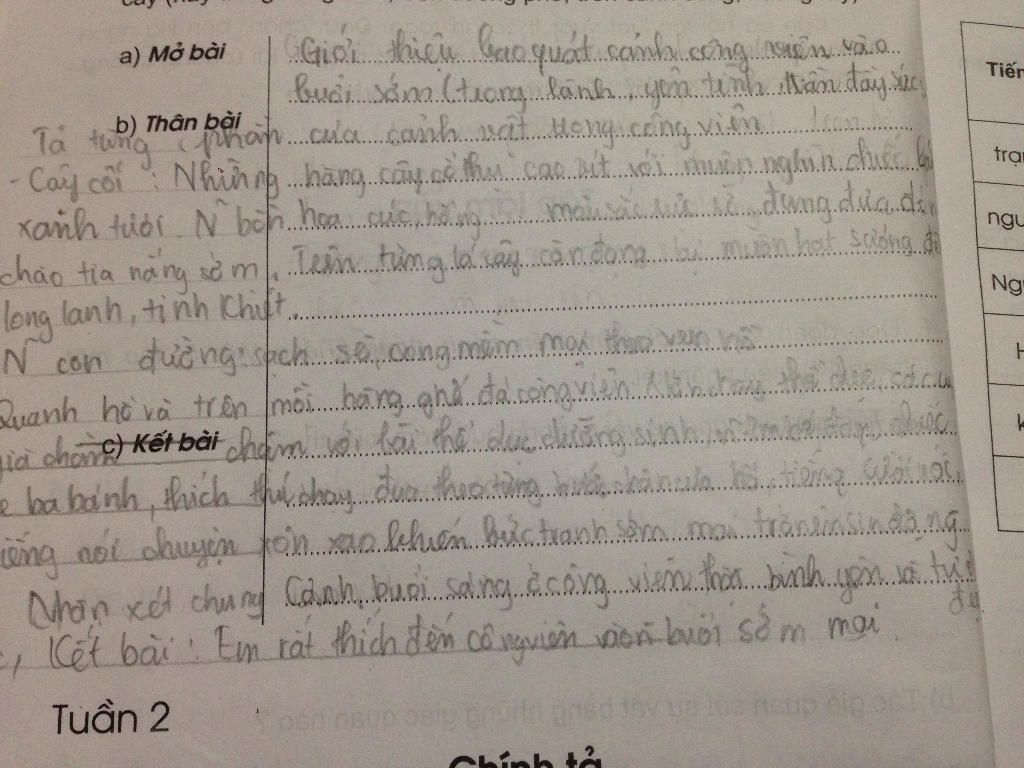 a) Mở bài Giới thiệu bao quát cảnh công viên vào
buổi sớm (trong lành, yên tĩnh, tràn đầy sức
b) Thân bài
Tả từng phần của cảnh vật trong công viên
- Cây cối : Những hàng cây cổ thụ cao vút với muôn nghìn chiếc lá
xanh tươi. N~ bồn hoa cúc, hồng màu sắc rực rỡ, đung đưa
chào tia nắng sớm. Trên từng lá cây còn đọng lại muôn hạt sương
long lanh, tinh khiết.
N~ con đường sạch sẽ, cong mềm mại theo ven hồ
Quanh hồ và trên mỗi hàng ghế đá công viên thể dục, có cụ
già chậm với bài thể dục dưỡng sinh, em bé đạp chiếc
ba bánh, thích thú chạy đua theo từng bước chân của bố, tiếng cười nói,
tiếng nói chuyện xôn xao khiến bức tranh sớm mai trở nên sinh động
Nhận xét chung Cảnh buổi sáng ở công viên thật bình yên và tươi
đẹp
c, Kết bài : Em rất thích đến công viên vào buổi sớm mai.
c) Kết bài
Tuần 2
Chính tả
Tiến
trạn
ngu
Ng
H
k